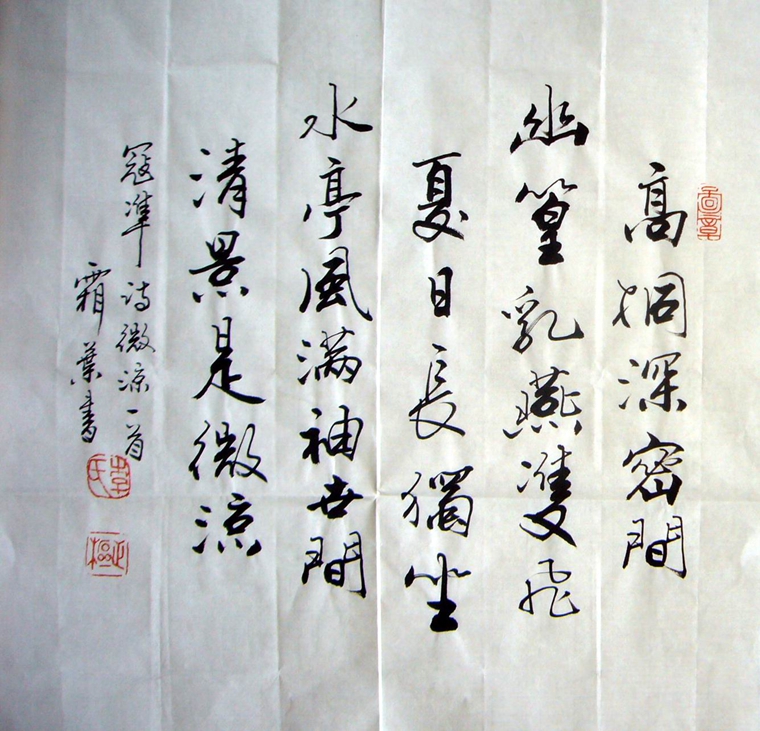 高桐深密間
幽篁乳燕雙飛
夏日長獨坐
水亭風滿袖世間
清景是微涼
寇準詩微涼一首
霜葉書